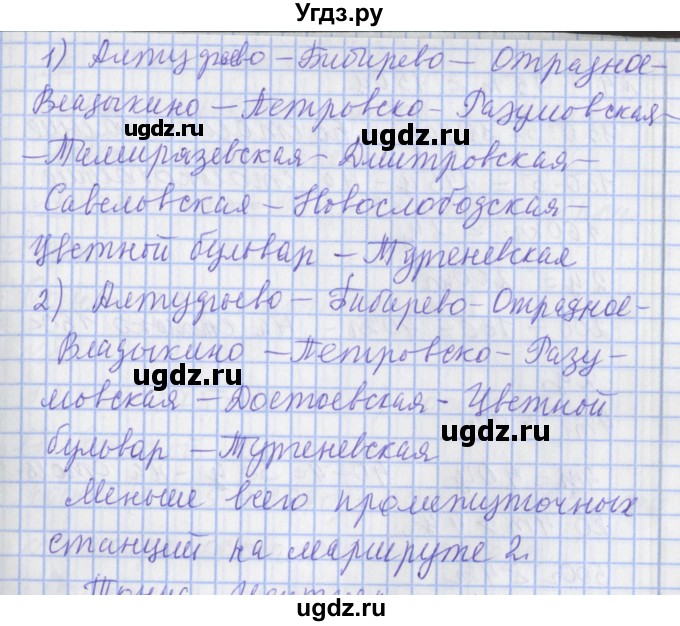 Угдз.ру
1) Алтудьево – Бибирево – Отрадное –
Владыкино – Петровско – Разумовская –
ugdz.ru
ugdz.ru
– Тимирязевская – Дмитровская –
Савеловская – Новослободская –
Цветной бульвар – Тургеневская
2) Алтудьево – Бибирево – Отрадное –
Владыкино – Петровско – Разу –
ugdz.ru
мовская – Достоевская – Цветной
ugdz.ru
бульвар – Тургеневская
Меньше всего промежуточных
станций на маршруте 2.
ugdz.ru